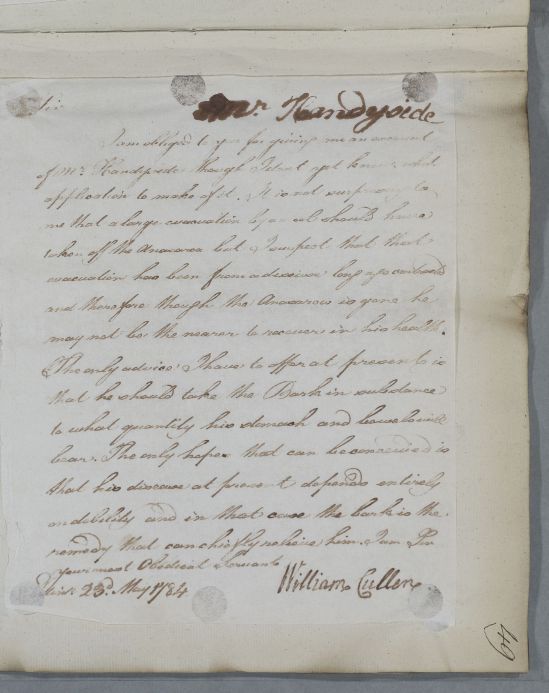 Sir
Mr. Handyside
I am obliged to you for giving me an account
of Mr. Handyside though I do not yet know what
application to make of it. It is not surprising to
me that a large evacuation by an ulcer should have
taken off the Anasarca but I suspect that that
evacuation has been from a disease long ago contracted
and therefore though the Anasarca is gone he
may not be the nearer to recover in his health.
The only advice I have to offer at present is
that he should take the Bark in substance
to what quantity his stomach and bowels will
bear. The only hope that can be conceived is
that his disease at present depends entirely
on debility and in that case the bark is the
remedy that can chiefly relieve him. I am Sir
your most Obedient Servant
23d. May 1784 William Cullen
49